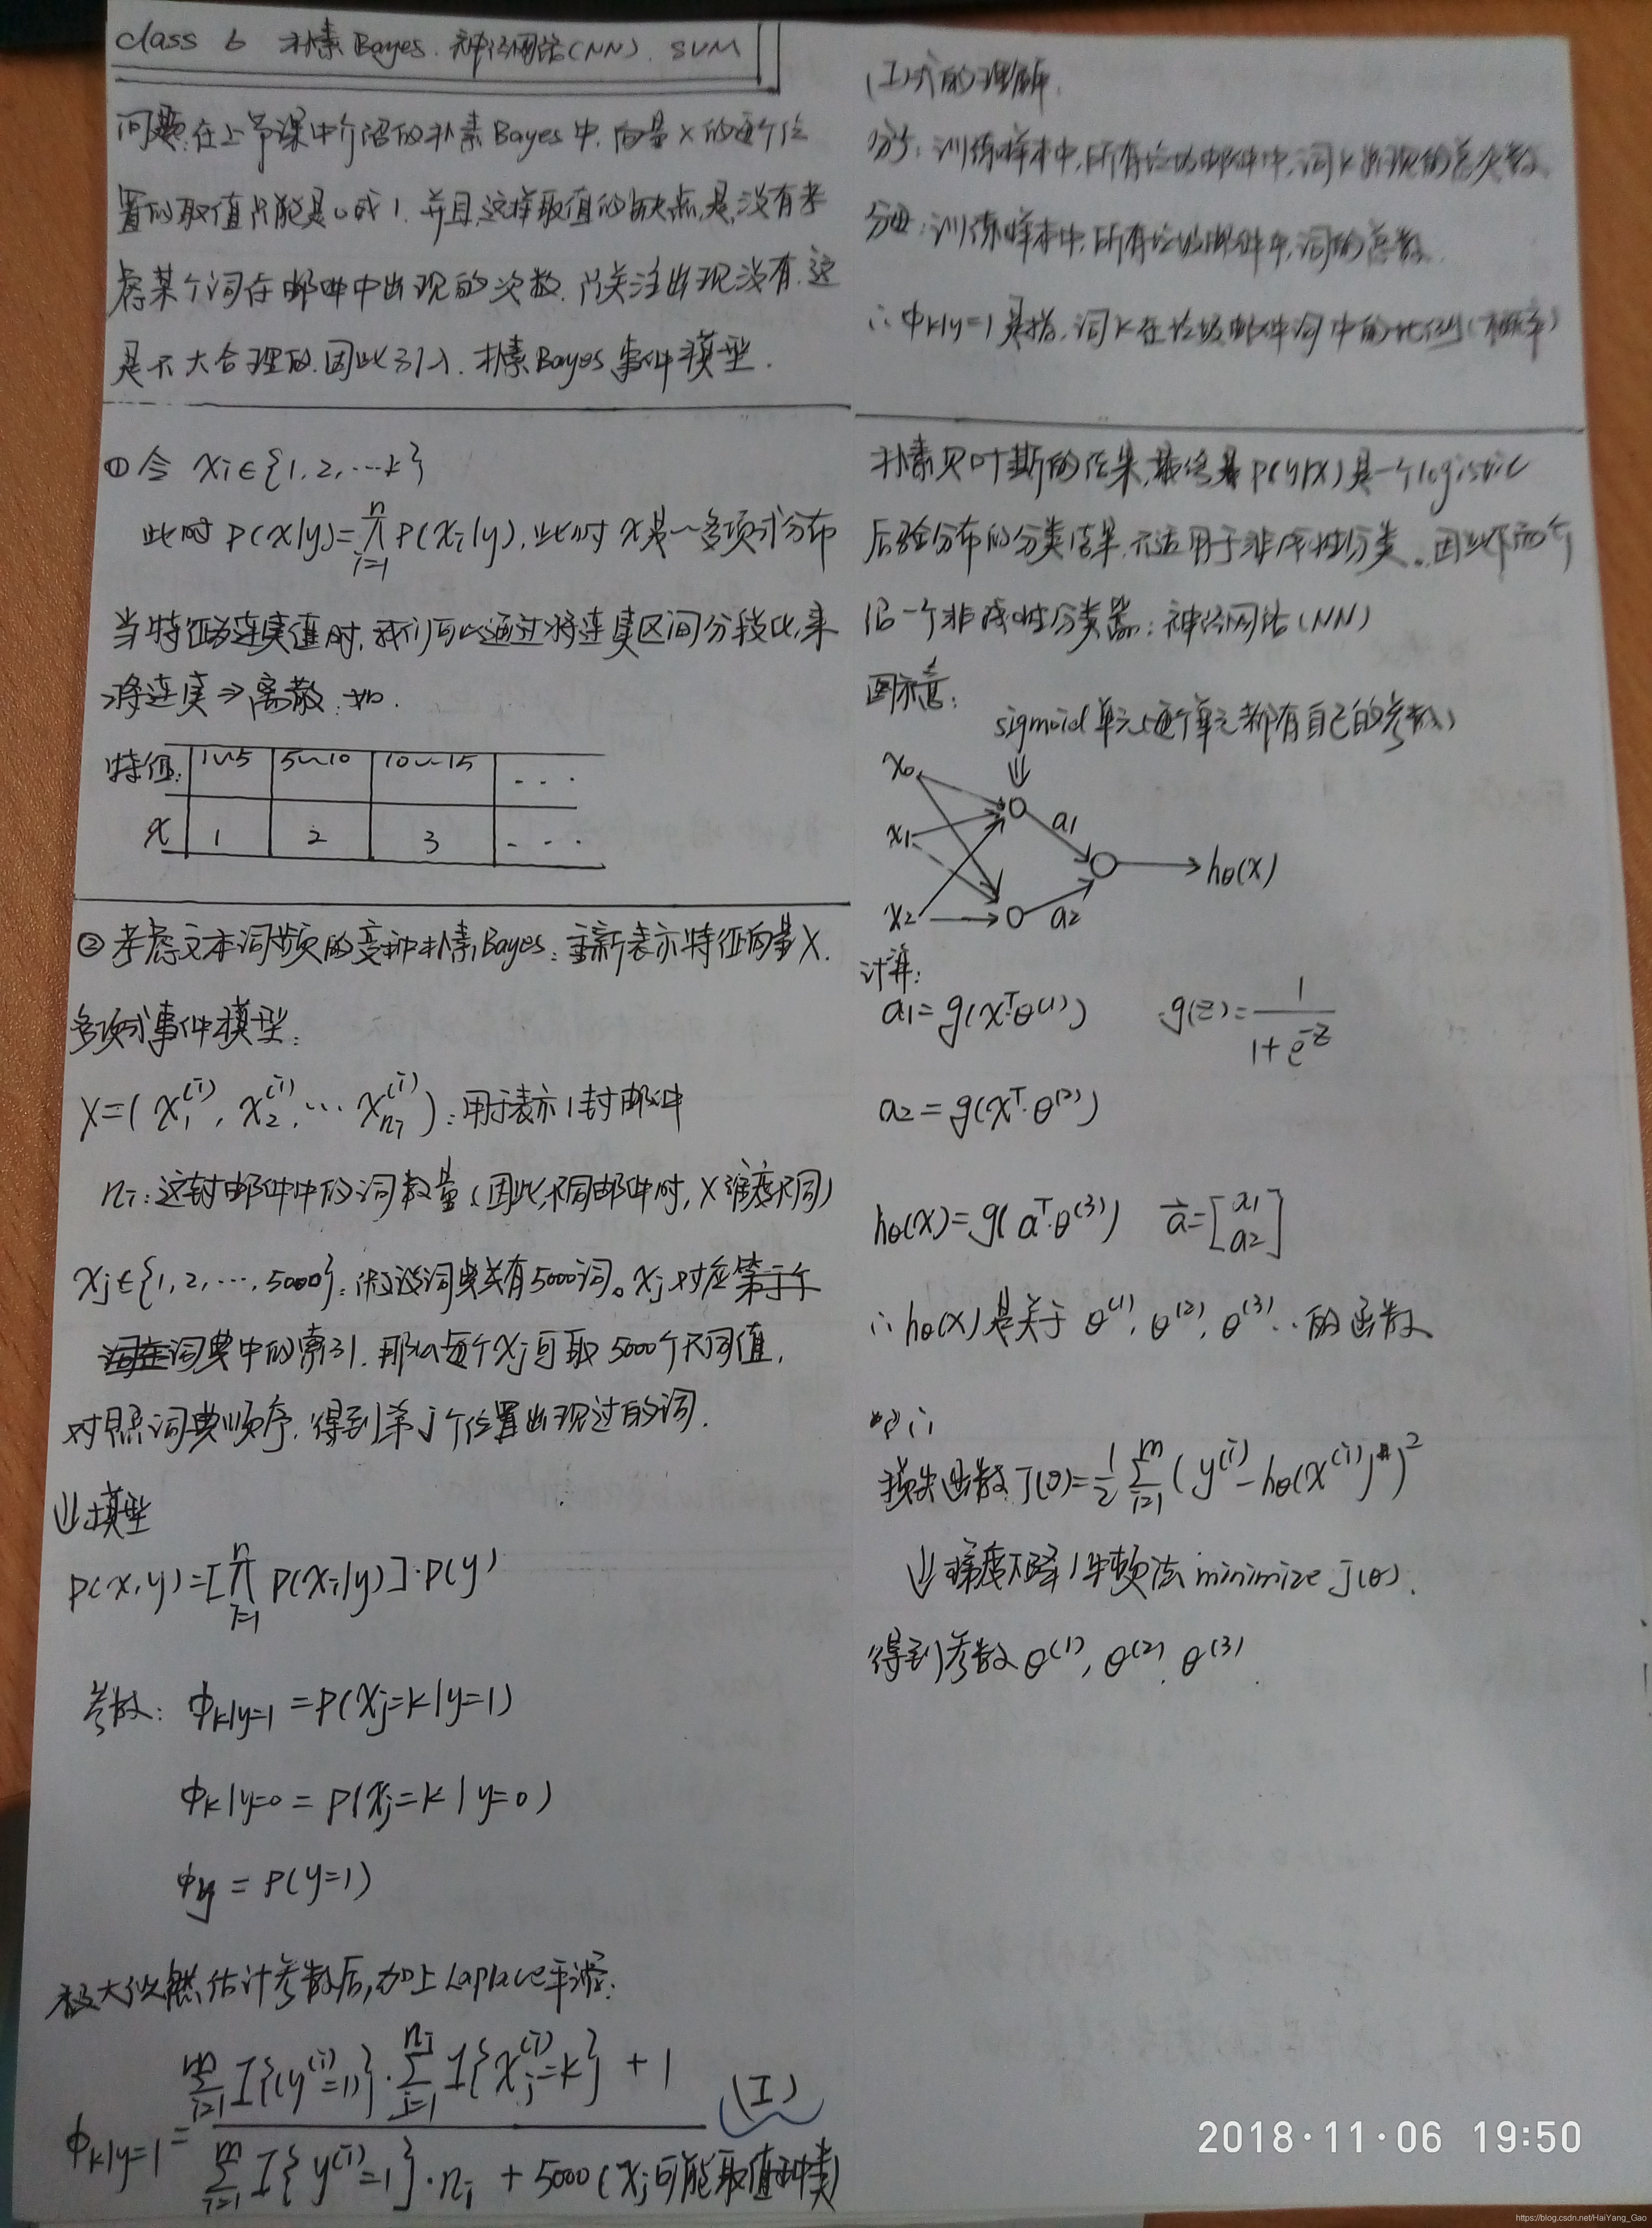 class 6 朴素Bayes. 神经网络(NN). SVM
问题:在上节课中介绍的朴素Bayes中,向量x的每个位
置的取值只能是0或1.并且,这样取值的缺点,是,没有考
虑某个词在邮件中出现的次数.只关注出现没有.这
是不大合理的.因此引入.朴素Bayes事件模型.
① 令 xi∈{1,2,…k}
此时 P(x|y)=∏_{i=1}^{n} P(xi|y),此时 x是一多项式分布
当特征为连续值时,我们可以通过将连续区间分段化,来
将连续⇒离散.如.
特征: 1~5 5~10 10~15 ...
x 1 2 3 ...
② 考虑文本词频的变种朴素Bayes:重新表示特征向量X.
多项式事件模型:
X=(x_1^{(i)}, x_2^{(i)}, … x_{ni}^{(i)}):用于表示1封邮件
ni:这封邮件中的词数量(因此,不同邮件时,X维度不同)
xj∈{1,2,…,5000}:假设词典共有5000词。xj对应第j个
词在词典中的索引.那么每个xj可取5000个不同值,
对照词典顺序,得到第j个位置出现过的词.
⇓模型
P(x,y)=[∏_{i=1}^{n} P(xi|y)]·P(y)
参数: φk|y=1 = P(xj=k|y=1)
φk|y=0 = P(xj=k|y=0)
φy = P(y=1)
极大似然估计参数后,加上Laplace平滑:
φk|y=1 = \frac{∑_{i=1}^{m} I{(y^{(i)}=1)}·∑_{j=1}^{ni} I{x_j^{(i)}=k} + 1}{∑_{i=1}^{m} I{y^{(i)}=1}·ni + 5000(xj可能取值种类)} (I)
(I)式的理解.
分子:训练样本中,所有垃圾邮件中,词k出现的总次数
分母:训练样本中,所有垃圾邮件中,词的总数.
∴φk|y=1是指,词k在垃圾邮件词中的比例(概率)
朴素贝叶斯的结果,最终是P(y|x)是一个logistic
后验分布的分类结果,不适用于非线性分类。因此下面介
绍一个非线性分类器:神经网络(NN)
图示意:
sigmoid单元(每个单元都有自己的参数)
⇓
x0
x1
x2
a1
a2
hθ(x)
计算:
a1=g(x^T·θ^{(1)}) g(z)=\frac{1}{1+e^{-z}}
a2=g(x^T·θ^{(2)})
hθ(x)=g(a^T·θ^{(3)}) \vec{a}=[a1 a2]
∴hθ(x)是关于 θ^{(1)},θ^{(2)},θ^{(3)}..的函数
损失函数J(θ)=\frac{1}{2}∑_{i=1}^{m}(y^{(i)}-hθ(x^{(i)}))^2
⇓梯度下降/牛顿法 minimize J(θ).
得到参数θ^{(1)},θ^{(2)},θ^{(3)}.
2018·11·06 19:50
https://blog.csdn.net/HaiYang_Gao